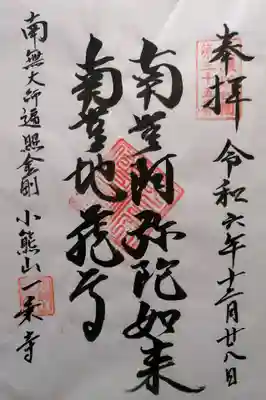 奉拝
令和六年十二月廿八日
南無阿弥陀如来
南無地蔵尊
小熊山一乗寺
南無大師遍照金剛